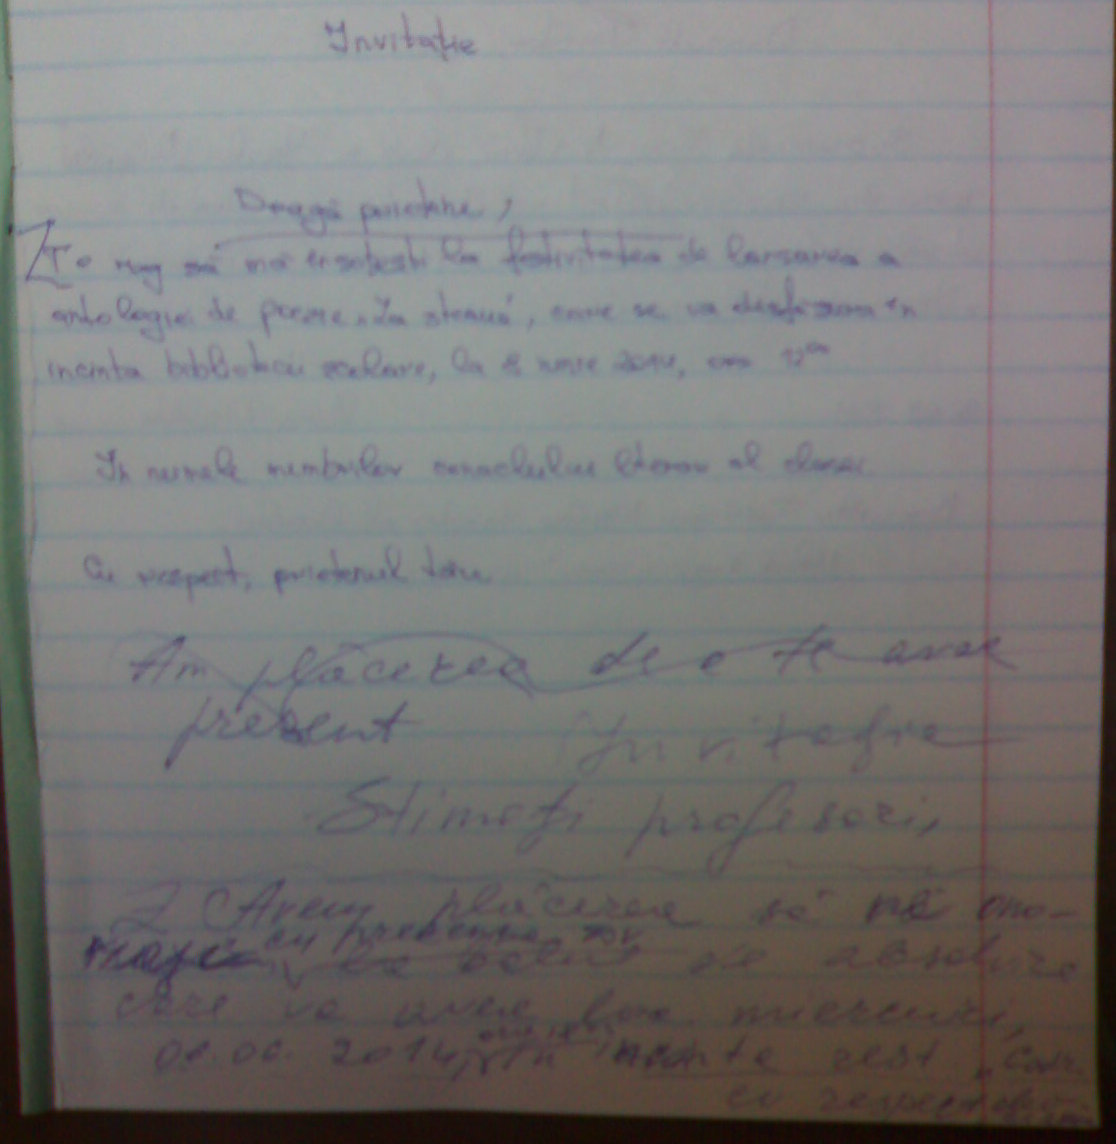 Invitație
Dragă prietene,
Te rog să mă însoțești la festivitatea de lansarea a
antologiei de poezie „La steaua", care se va desfășura în
incinta bibliotecii școlare, la 8 2014, ora 12⁰⁰
În numele membrilor cenaclului literar al clasei
Cu respect, prietenul tău
Am plăcerea de a te avea
prezent
Invitație
Stimați profesori,
Avem plăcerea să nă ono-
cu prezența
de absolvire
care va avea loc miercuri,
2014, în rest
cu respect